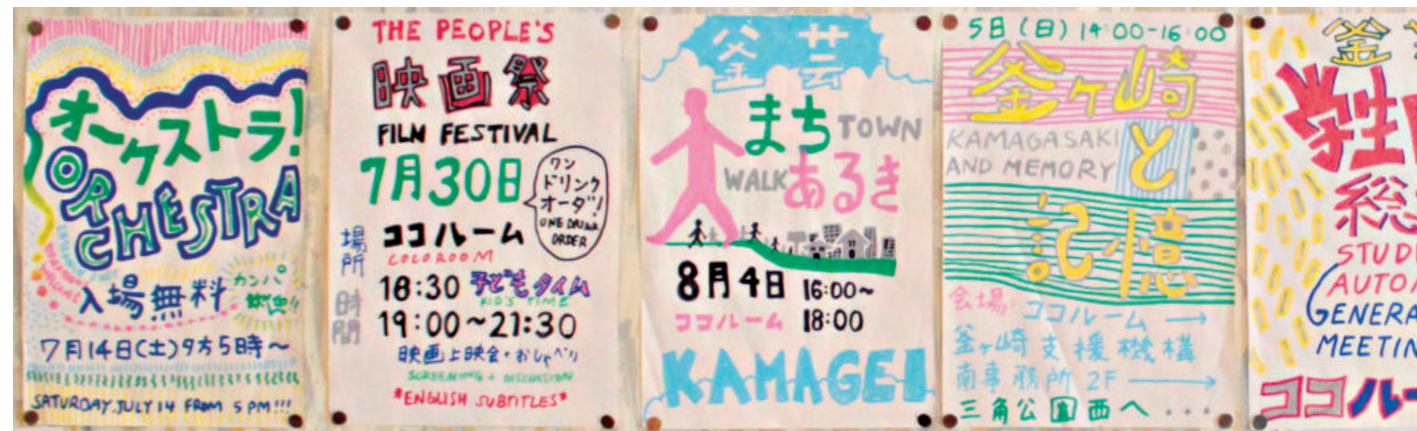 オーケストラ!
ORCHESTRA
入場無料
カンパ
歓迎!!
7月14日(土)夕方5時〜
SATURDAY JULY 14 FROM 5 PM!!!
THE PEOPLE'S
映画祭
FILM FESTIVAL
7月30日
ワン
ドリンク
オーダー!
ONE DRINK
ORDER
場所
ココルーム
COCOROOM
時間
18:30 子どもタイム
KID'S TIME
19:00〜21:30
映画上映会・おしゃべり
SCREENING + DISCUSSION
*ENGLISH SUBTITLES*
釜芸
まち TOWN
WALK あるき
8月4日 16:00〜
ココルーム 18:00
KAMAGEI
5日(日)14:00-16:00
釜ヶ崎
KAMAGASAKI
AND MEMORY
と
記憶
会場:ココルーム →
釜ヶ崎支援機構
南事務所 2F →
三角公園西へ...
釜
学生
総
STUD
AUTO
GENERA
MEETIN
ココルー